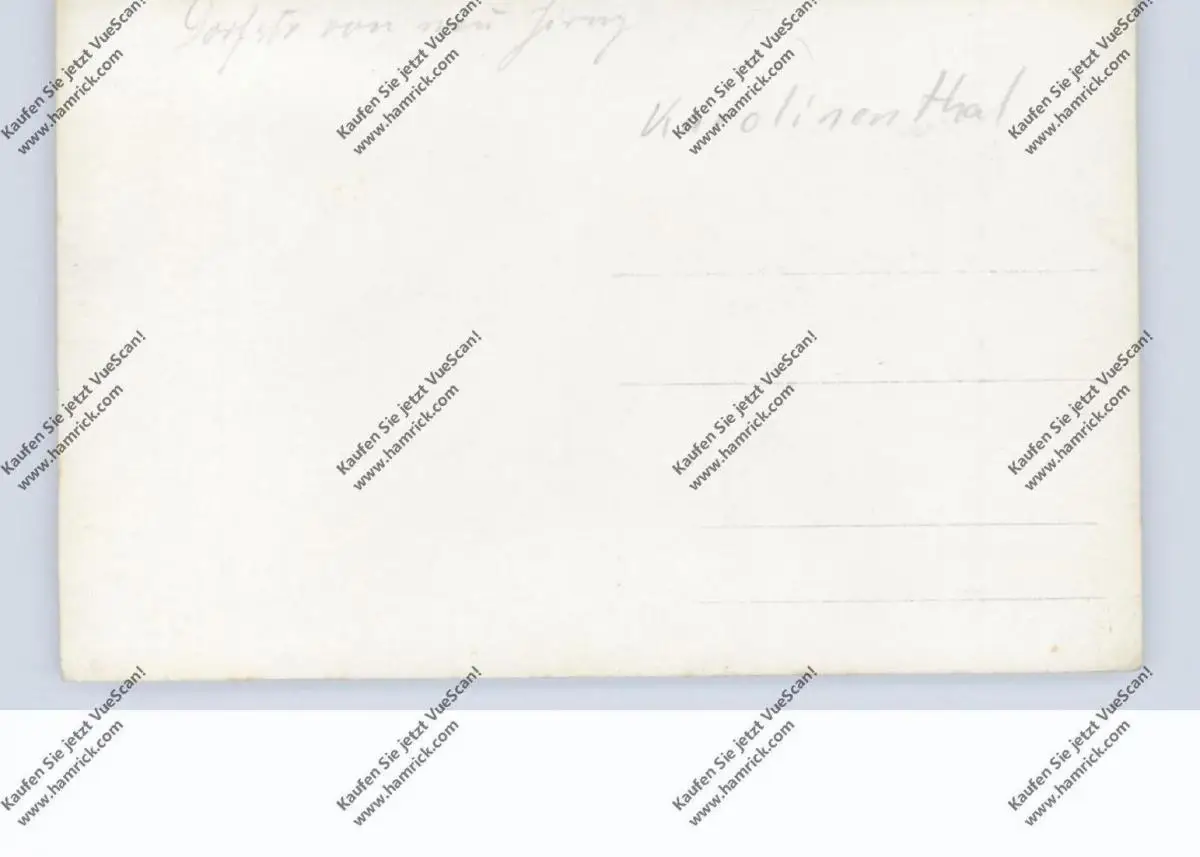 von
Karolinenthal
Kaufen Sie jetzt VueScan!
www.hamrick.com
Kaufen Sie jetzt VueScan!
www.hamrick.com
Kaufen Sie jetzt VueScan!
www.hamrick.com
Kaufen Sie jetzt VueScan!
www.hamrick.com
Kaufen Sie jetzt VueScan!
www.hamrick.com
Kaufen Sie jetzt VueScan!
www.hamrick.com
Kaufen Sie jetzt VueScan!
www.hamrick.com
Kaufen Sie jetzt VueScan!
www.hamrick.com
Kaufen Sie jetzt VueScan!
www.hamrick.com
Kaufen Sie jetzt VueScan!
www.hamrick.com
Kaufen Sie jetzt VueScan!
www.hamrick.com
Kaufen Sie jetzt VueScan!
www.hamrick.com